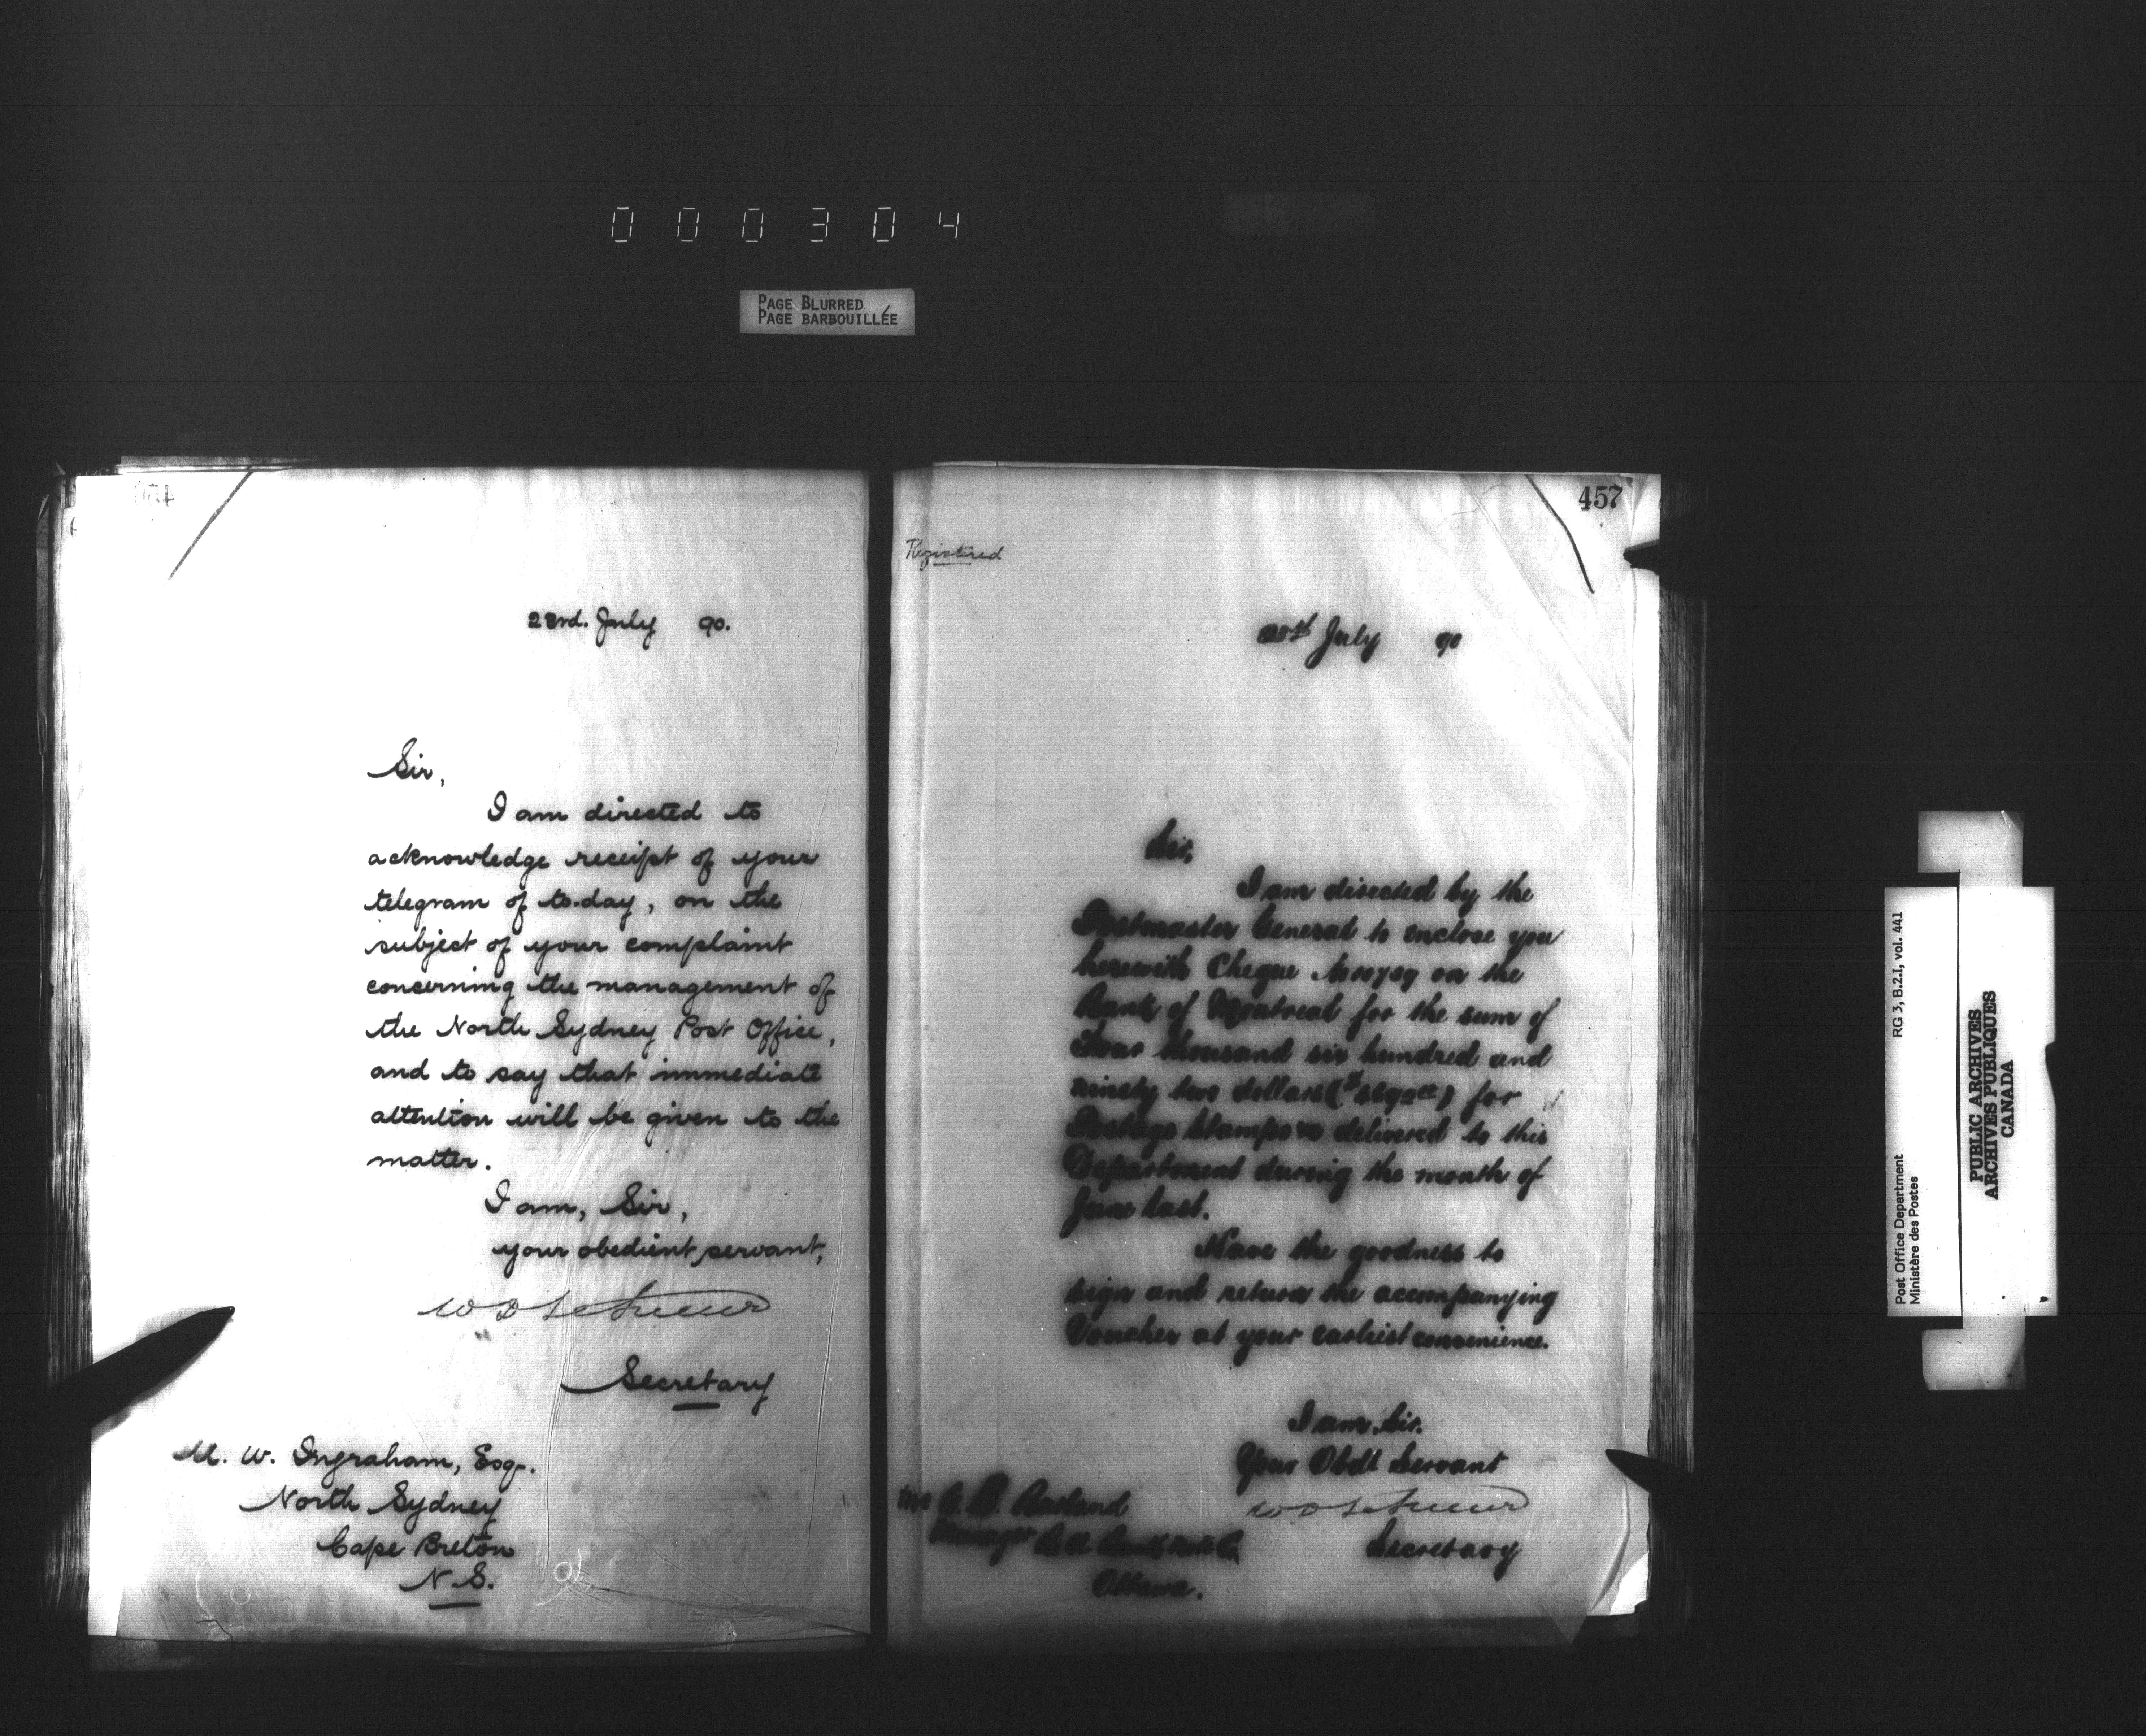 000304
PAGE BLURRED
PAGE BARBOUILLÉE
23rd. July 90.
Sir,
I am directed to
acknowledge receipt of your
telegram of to-day, on the
subject of your complaint
concerning the management of
the North Sydney Post Office,
and to say that immediate
attention will be given to the
matter.
I am, Sir,
your obedient servant,
W D LeSueur
Secretary
M. W. Ingraham, Esq.
North Sydney
Cape Breton
N.S.
457
Registered
July 90
Sir,
I am directed by the
Postmaster General to enclose you
herewith Cheque on the
Bank of Montreal for the sum of
thousand six hundred and
ninety two dollars for
Postage Stamps delivered to this
Department during the month of
June last.
Have the goodness to
sign and return the accompanying
Voucher at your earliest convenience.
I am, Sir,
Your Obdt Servant
W D LeSueur
Secretary
Manager
Ottawa.
Post Office Department RG 3, B.2.1, vol. 441
Ministère des Postes
PUBLIC ARCHIVES
ARCHIVES PUBLIQUES
CANADA